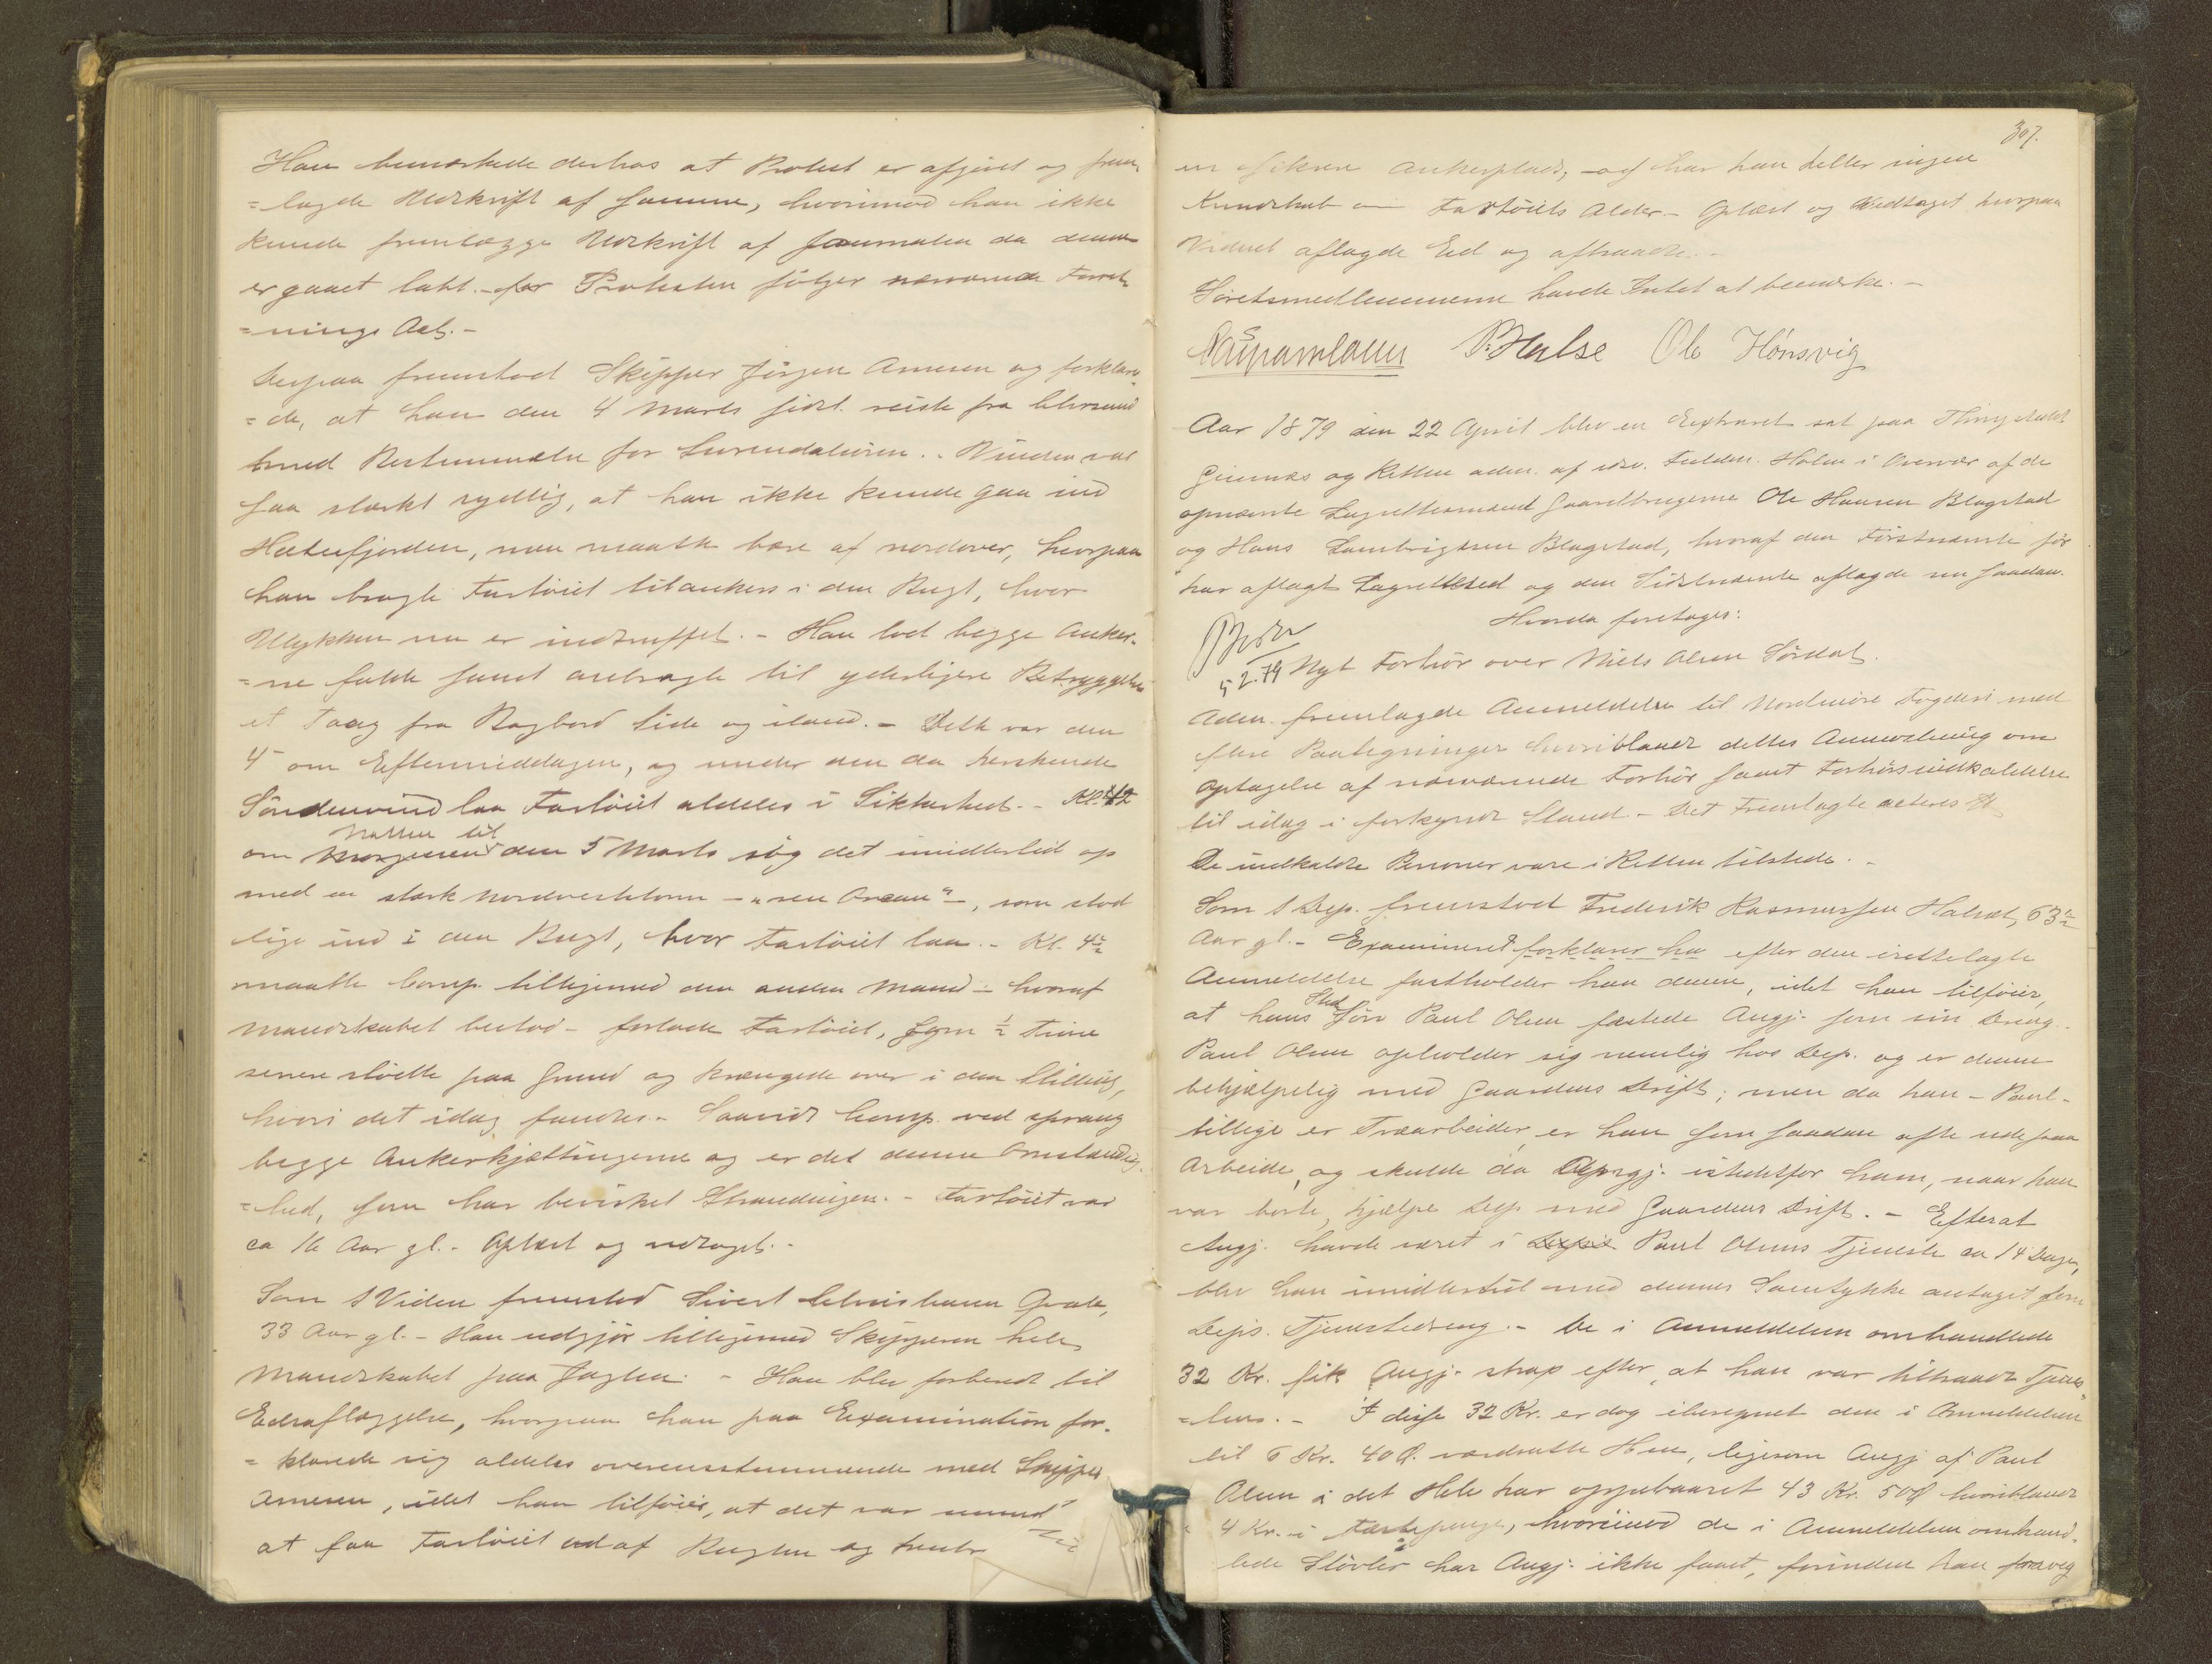 Han bemærkede derhos at Protest er afgivet og frem
=lagde Udskrift af samme, hvorimod han ikke
kunde fremlægge Udskrift af Journalen da denne
er gaaet tabt. - for Protesten følger nærværende Forret
=nings Act. -
Derpaa fremstod Skipper Jørgen Arnesen og forklare
=de, at han den 4 Marts sidstl. reiste fra Chrsund
med Bestemmelse for Surendalsøren. - Vinden var
saa stærkt sydlig, at han ikke kunde gaa ind
Halsefjorden, men maatte bære af nordover, hvorpaa
han bragte Fartøiet tilankers i den Bugt, hvor
Ulykken nu er indtruffet. - Han lod begge Anker-
=ne falde samt anbragte til yderligere Betryggelse
et Taag fra Bagbord Side og iland. - Dette var den
4 om Eftermiddagen, og under den da herskende
Søndenvind laa Fartøiet aldeles i Sikkerhed. - Kl. 12
Natten til
om Morgenen den 5 Marts røg det imidlertid op
med en stærk Nordveststorm - "ren Orcan" -, som stod
lige ind i den Bugt, hvor Fartøiet laa. - Kl. 4½
maatte Comp. tilligemed den anden Mand - hvoraf
Mandskabet bestod - forlade Fartøiet, som ½ Time
senere stødte paa Grund og krængede over i den Stilling,
hvori det idag fandtes. - Saavidt Comp. ved sprang
begge Ankerkjættingerne og er det denne Omstændig
=hed, som har bevirket Strandingen. - Fartøiet var
ca 16 Aar gl. - Oplæst og vedtaget. -
Som 1 Vidne fremstod Sivert Christiansen
33 Aar gl. - Han udgjør tilligemed Skipperen hele
Mandskabet paa Jagten. - Han blev forberedt til
Edsaflæggelse, hvorpaa han paa Examination for-
=klarede sig aldeles overensstemmende med Skipper
Arnesen, idet han tilføier, at det var umuligt
at faa Fartøiet ud af Bugten og
307.
en sikrere Ankerplads, - og har han heller ingen
Kundskab om Fartøiets Alder. - Oplæst og Vedtaget hvorpaa
Vidnet aflagde Ed og aftraadte. -
Søretsmedlemmerne havde Intet at bemærke. -
P. Halse Ole Hønsvig
Aar 1879 den 22 April blev en Extraret sat paa Thingstedet
Geimnæs og Retten adm. af edsv. Fuldm. Holm i Overvær af de
opnævnte Lagrettesmænd Gaardbrugerne Ole Hansen Blagstad
og Hans Lambrigtsen Blagstad, hvoraf den Førstnævnte før
har aflagt Lagrettesed og den Sidstnævnte aflagde nu saadan.
Hvorda foretoges:
5 2. 79 Nyt Forhør over Niels Olsen Sørdal.
Adm. fremlagde Anmeldelse til Nordmøre Fogderi med
flere Paategninger hvoriblandt dettes Anmodning om
Optagelse af nærværende Forhør samt Forhørsindkaldelse
til idag i forkyndt Stand - Det Fremlagte acteres
De indkaldte Personer vare i Retten tilstede. -
Som 1 Dep. fremstod Frederik Rasmussen Halset, 63½
Aar gl. - Examineret forklarer ha efter den irettelagte
Anmeldelse fastholder han denne, idet han tilføier,
Sted
at hans Søn Paul Olsen fæstede Angj. som sin Dreng.
Paul Olsen opholder sig nemlig hos Dep. og er denne
behjælpelig med Gaardens Drift; men da han - Paul -
tillige er Træarbeider, er han som saadan ofte ude paa
Arbeide, og skulde da Angj. istedetfor ham, naar han
var borte, hjælpe Dep. med Gaardens Drift. - Efterat
Angj. havde været i Paul Olsens Tjeneste ca 14 Dage,
blev han imidlertid med dennes Samtykke antaget som
Deps. Tjenestedreng. - De i Anmeldelsen omhandlede
32 Kr. fik Angj. strax efter, at han var tiltraadt Tjenes
=ten. - I disse 32 Kr. er dog iberegnet den i Anmeldelsen
til 6 Kr. 40 Ø. værdsatte Hue, ligesom Angj. af Paul
Olsen i det Hele har oppebaaret 43 Kr. 50 Ø hvoriblandt
4 Kr. i Fæstepenge, hvorimod de i Anmeldelsen omhand-
lede Støvler har Angj. ikke faaet, forinden han frarveg